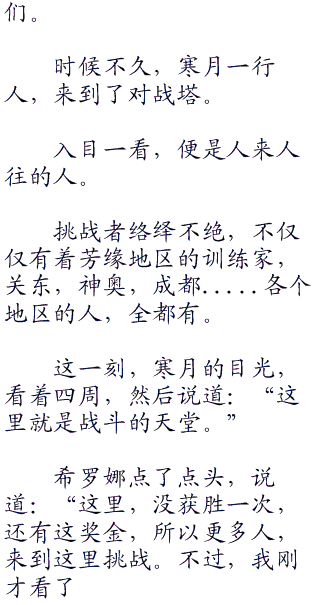 们。
时候不久，寒月一行
人，来到了对战塔。
入目一看，便是人来人
往的人。
挑战者络绎不绝，不仅
仅有着芳缘地区的训练家，
关东，神奥，成都.....各个
地区的人，全都有。
这一刻，寒月的目光，
看着四周，然后说道：“这
里就是战斗的天堂。”
希罗娜点了点头，说
道：“这里，没获胜一次，
还有这奖金，所以更多人，
来到这里挑战。不过，我刚
才看了